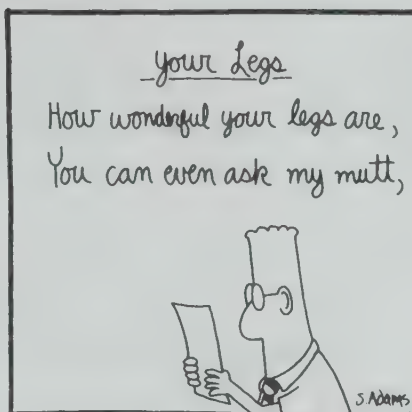 Your Legs
How wonderful your legs are,
You can even ask my mutt,
S. Adams